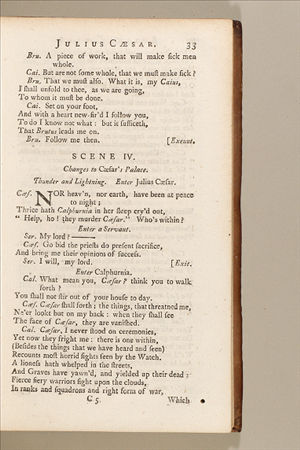 JULIUS CÆSAR. 33
Bru. A piece of work, that will make sick men
whole.
Cai. But are not some whole, that we must make sick?
Bru. That we must also. What it is, my Caius,
I shall unfold to thee, as we are going,
To whom it must be done.
Cai. Set on your foot,
And with a heart new-fir'd I follow you,
To do I know not what: but it sufficeth,
That Brutus leads me on.
Bru. Follow me then. [Exeunt.
SCENE IV.
Changes to Cæsar's Palace.
Thunder and Lightning. Enter Julius Cæsar.
Cæs. NOR heav'n, nor earth, have been at peace
to night;
Thrice hath Calphurnia in her sleep cry'd out,
" Help, ho! they murder Cæsar." Who's within?
Enter a Servant.
Ser. My lord?———
Cæs. Go bid the priests do present sacrifice,
And bring me their opinions of success.
Ser. I will, my lord. [Exit.
Enter Calphurnia.
Cal. What mean you, Cæsar? think you to walk
forth?
You shall not stir out of your house to day.
Cæs. Cæsar shall forth; the things, that threatned me,
Ne'er lookt but on my back: when they shall see
The face of Cæsar, they are vanished.
Cal. Cæsar, I never stood on ceremonies,
Yet now they fright me: there is one within,
(Besides the things that we have heard and seen)
Recounts most horrid sights seen by the Watch.
A lioness hath whelped in the streets,
And Graves have yawn'd, and yielded up their dead:
Fierce fiery warriors fight upon the clouds,
In ranks and squadrons and right form of war,
C 5. Which